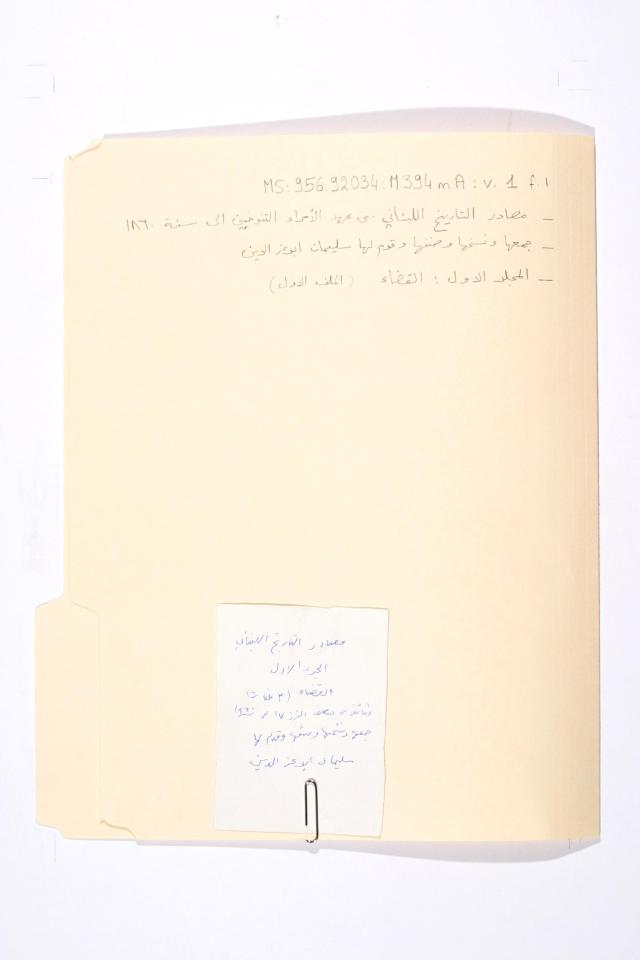 MS:956.92034:M394mA:v.1 f.1
_ مصادر التاريخ اللبناني :من عهد الأمراء التنوخيين الى سنة ١٨٦٠
_ جمعها ونسخها وصنفها وقدم لها سليمان ابو عز الدين
_ المجلد الاول : القضاء (الملف الاول)
مصادر التاريخ اللبناني
الجزء الاول
القضاء (٣ ملفات)
جمعها ونسخها وصنفها وقدم لها
سليمان ابو عز الدين